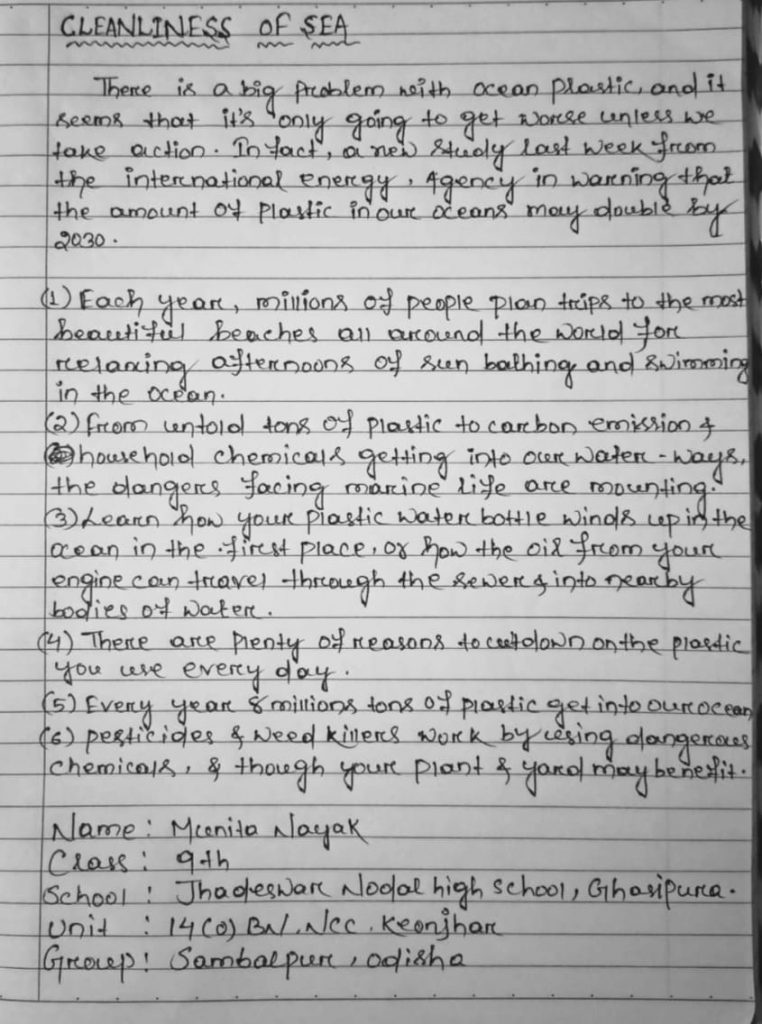 CLEANLINESS OF SEA
There is a big problem with ocean plastic, and it
seems that it's only going to get worse unless we
take action. In fact, a new study last week from
the international energy, Agency in warning that
the amount of plastic in our oceans may double by
2030.
(1) Each year, millions of people plan trips to the most
beautiful beaches all around the world for
relaxing afternoons of sun bathing and swimming
in the ocean.
(2) from untold tons of plastic to carbon emission &
household chemicals getting into our water-ways,
the dangers facing marine life are mounting.
(3) Learn how your plastic water bottle winds up in the
ocean in the first place, or how the oil from your
engine can travel through the sewer & into nearby
bodies of water.
(4) There are plenty of reasons to cut down on the plastic
you use every day.
(5) Every year 8 millions tons of plastic get into our ocean
(6) pesticides & weed killers work by using dangerous
chemicals, & though your plant & yard may benefit.
Name : Munita Nayak
Class : 9th
School : Jhadeswar Nodal high school, Ghasipura.
Unit : 14 (O) BN. NCC. Keonjhar
Group : Sambalpur, odisha